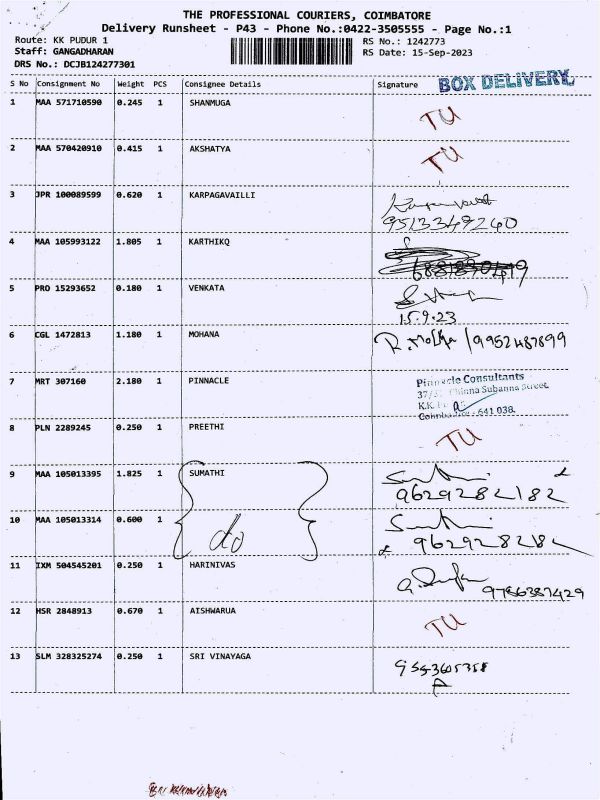 THE PROFESSIONAL COURIERS, COIMBATORE
Delivery Runsheet - P43 - Phone No.:0422-3505555 - Page No.:1
Route: KK PUDUR 1 RS No.: 1242773
Staff: GANGADHARAN RS Date: 15-Sep-2023
DRS No.: DCJB124277301
BOX DELIVERY
S No Consignment No Weight PCS Consignee Details Signature
1 MAA 571710590 0.245 1 SHANMUGA TU
2 MAA 570420910 0.415 1 AKSHATYA TU
3 JPR 100089599 0.620 1 KARPAGAVAILLI
9513349240
4 MAA 105993122 1.805 1 KARTHIKQ
5 PRO 15293652 0.180 1 VENKATA
15.9.23
6 CGL 1472813 1.180 1 MOHANA 9952487899
7 MRT 307160 2.180 1 PINNACLE Pinnacle Consultants
Chinna Subanna Street
K.K.
641 038.
8 PLN 2289245 0.250 1 PREETHI TU
9 MAA 105013395 1.825 1 SUMATHI
9629282182
do
10 MAA 105013314 0.600 1
11 IXM 504545201 0.250 1 HARINIVAS
9786387429
12 HSR 2848913 0.670 1 AISHWARUA TU
13 SLM 328325274 0.250 1 SRI VINAYAGA